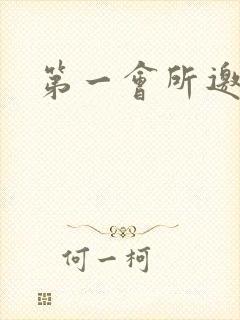 第一會所邀
何一柯